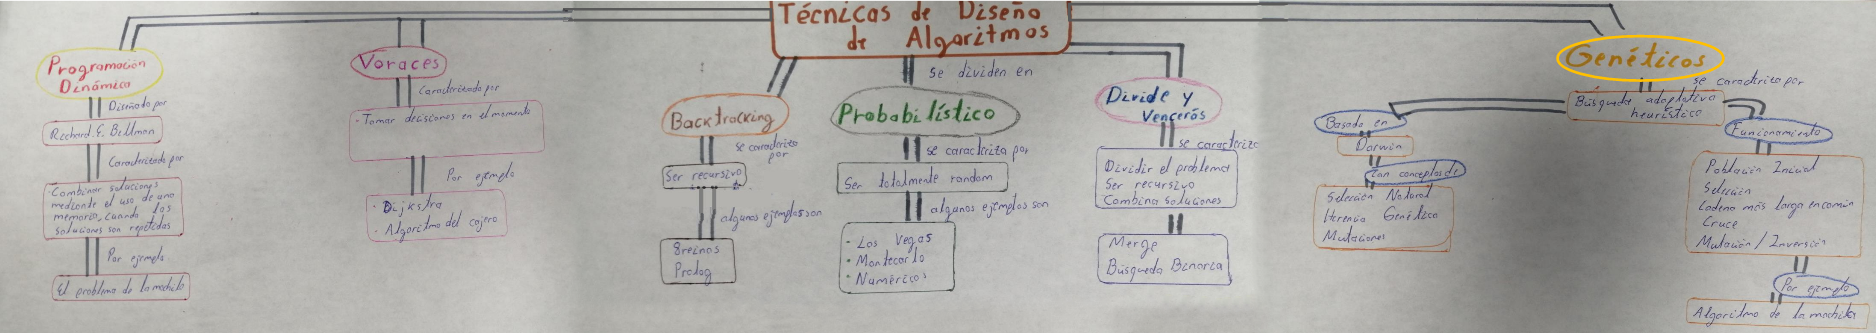 Técnicas de Diseño
de Algoritmos
se dividen en
Programación
Dinámica
Diseñado por
Richard E. Bellman
Caracterizado por
Combinar soluciones
mediante el uso de una
memoria, cuando las
soluciones son repetidas
Por ejemplo
El problema de la mochila
Voraces
Caracterizado por
· Tomar decisiones en el momento
Por ejemplo
· Dijkstra
· Algoritmo del cajero
Backtracking
se caracteriza
por
Ser recursivo
algunos ejemplos son
8 reinas
Prolog
Probabilístico
se caracteriza por
Ser totalmente random
algunos ejemplos son
· Las Vegas
· Montecarlo
· Numéricos
Divide y
Vencerás
se caracteriza
Dividir el problema
Ser recursivo
Combina soluciones
Merge
Búsqueda Binaria
Genéticos
se caracteriza por
Búsqueda adaptativa
heurística
Basado en
Darwin
Con conceptos de
Selección Natural
Herencia Genética
Mutaciones
Funcionamiento
Población Inicial
Selección
Cadena más larga en común
Cruce
Mutación / Inversión
Por ejemplo
Algoritmo de la mochila